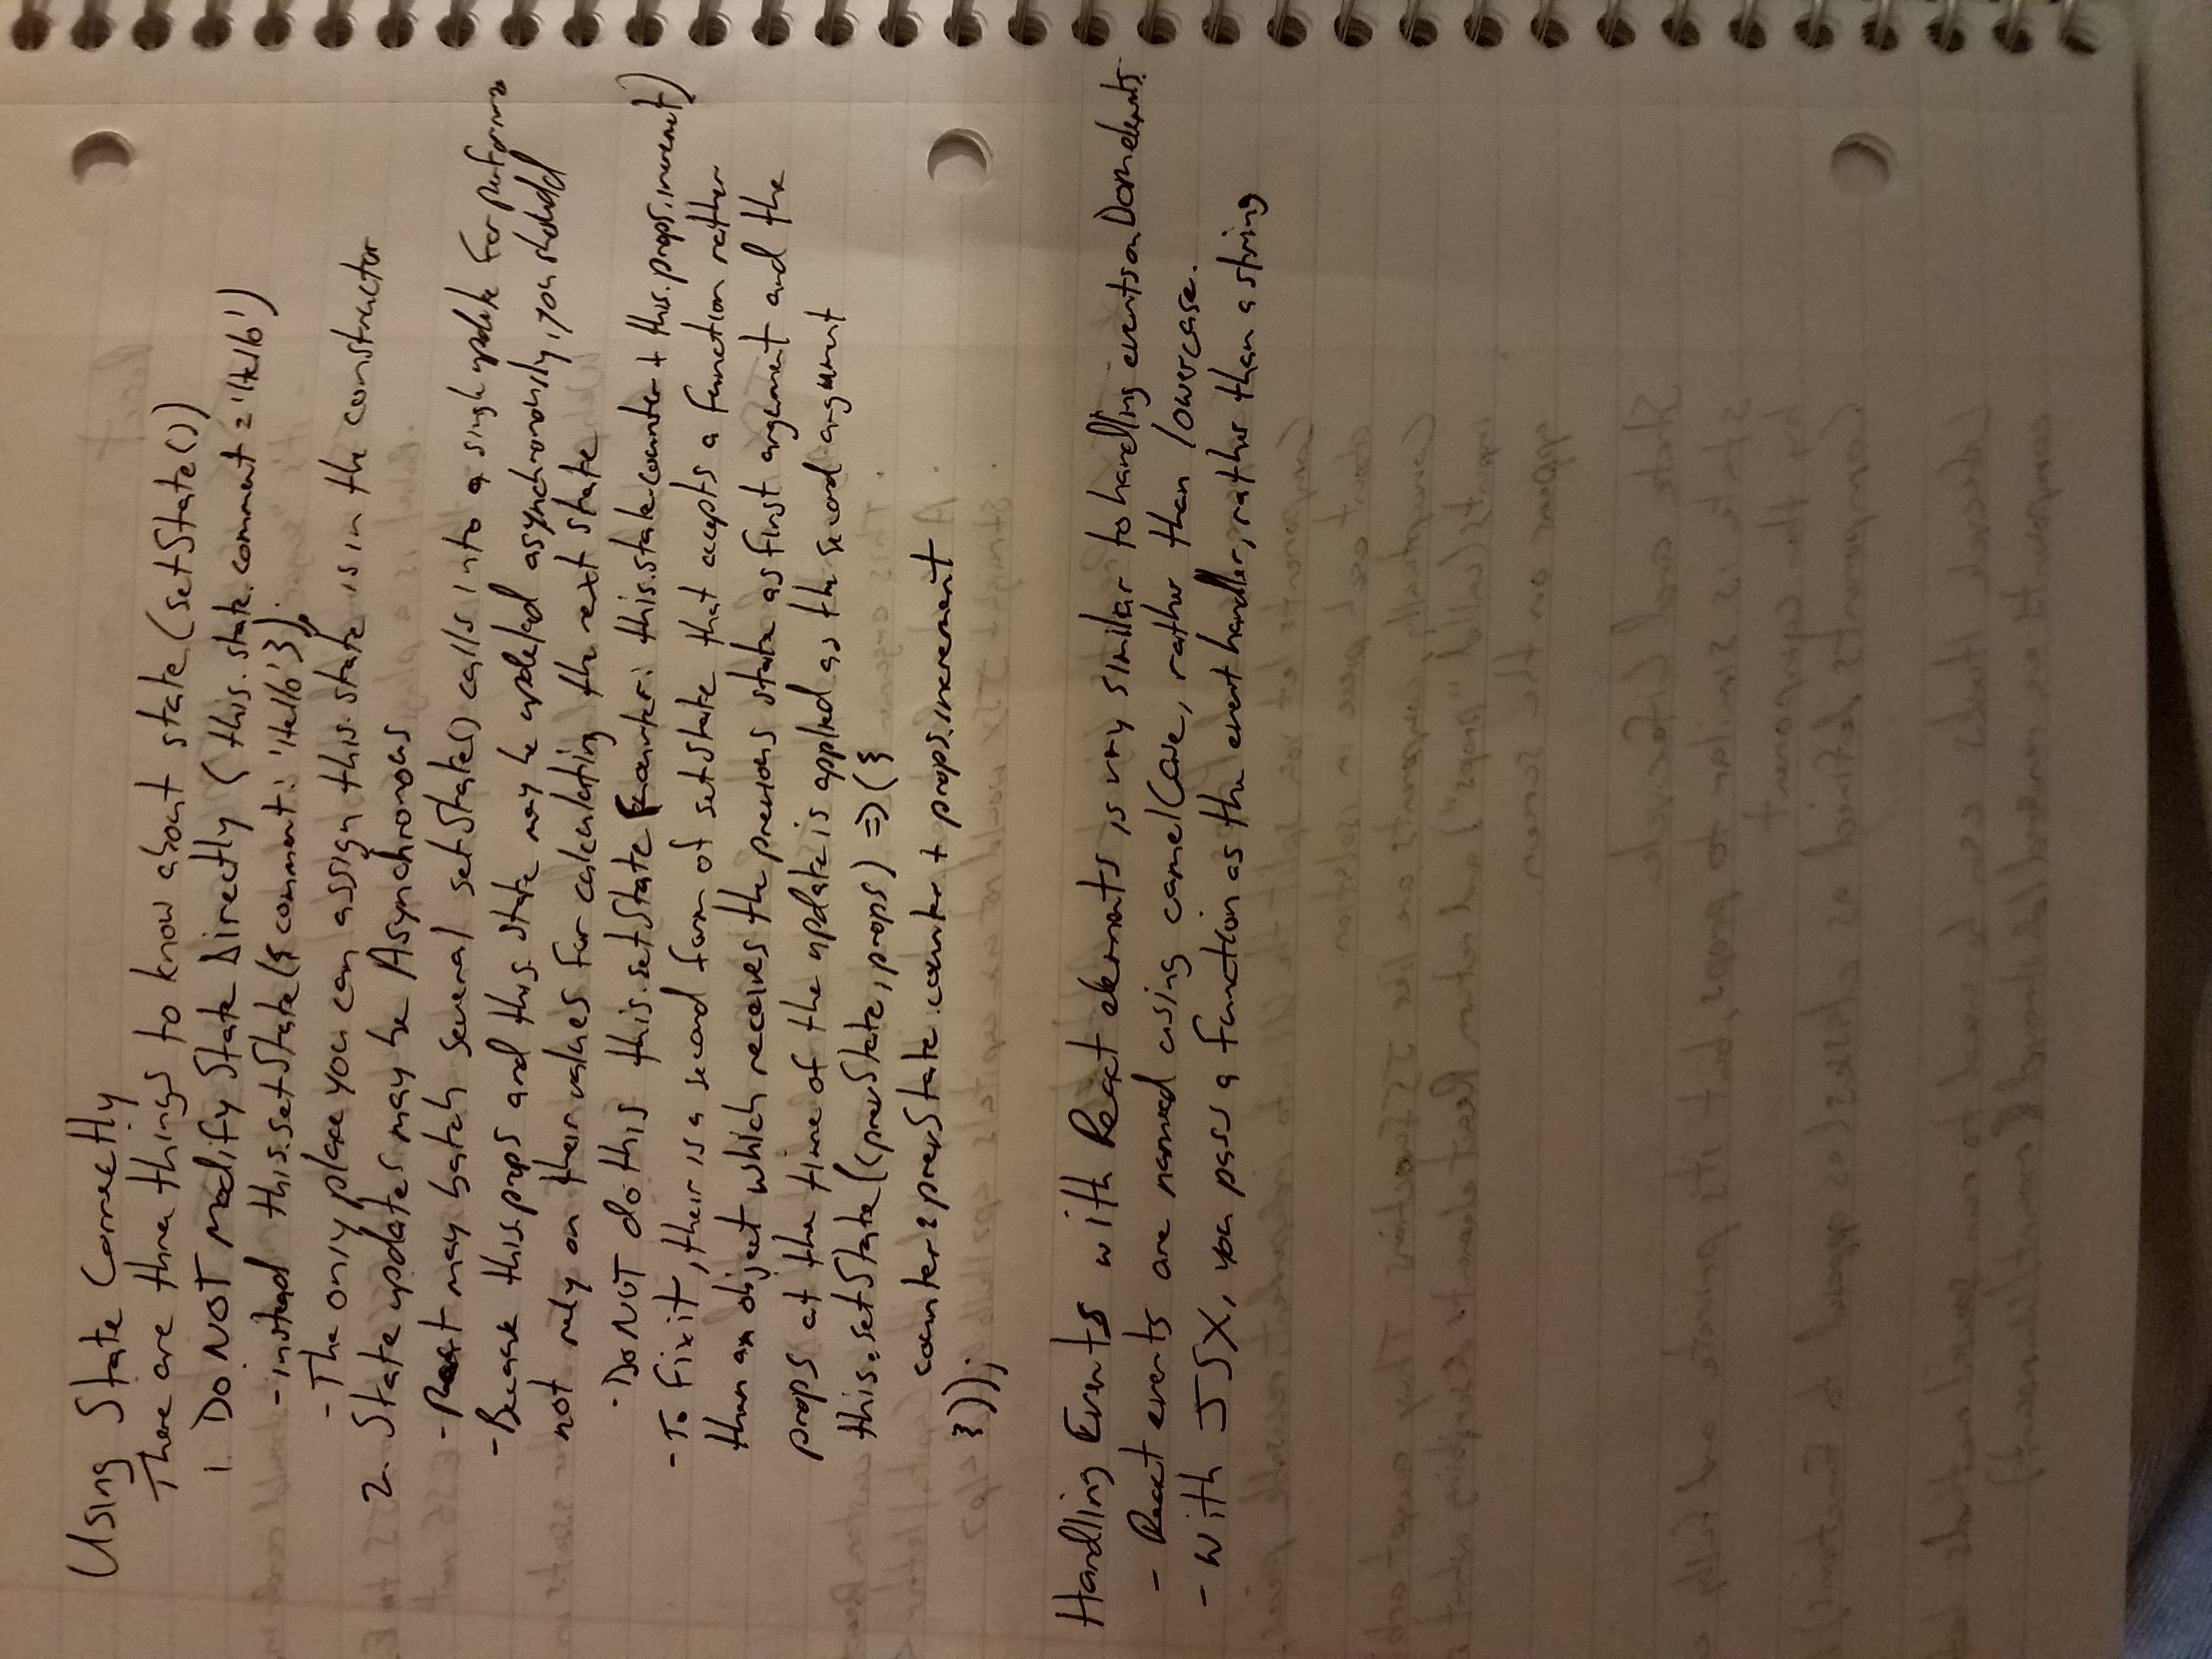 Using State Correctly
There are three things to know about state (setState())
1. Do NOT Modify State Directly (this.state.comment = 'Hello')
- instead this.setState({ comment: 'Hello' });
- The only place you can assign this.state is in the constructor
2. State updates may be Asynchronous
- React may batch several setState() calls into a single update for performance
- Because this.props and this.state may be updated asynchronously, you should
not rely on their values for calculating the next state
- Do NOT do this this.setState({counter: this.state.counter + this.props.increment)
- To fix it, their is a second form of setState that accepts a function rather
than an object which receives the previous state as first argument and the
props at the time of the update is applied as the second argument
this.setState((prevState, props) => ({
counter: prevState.counter + props.increment
}));
Handling Events with React elements is very similar to handling events on DOM elements.
- React events are named using camelCase, rather than lowercase.
- With JSX, you pass a function as the event handler, rather than a string